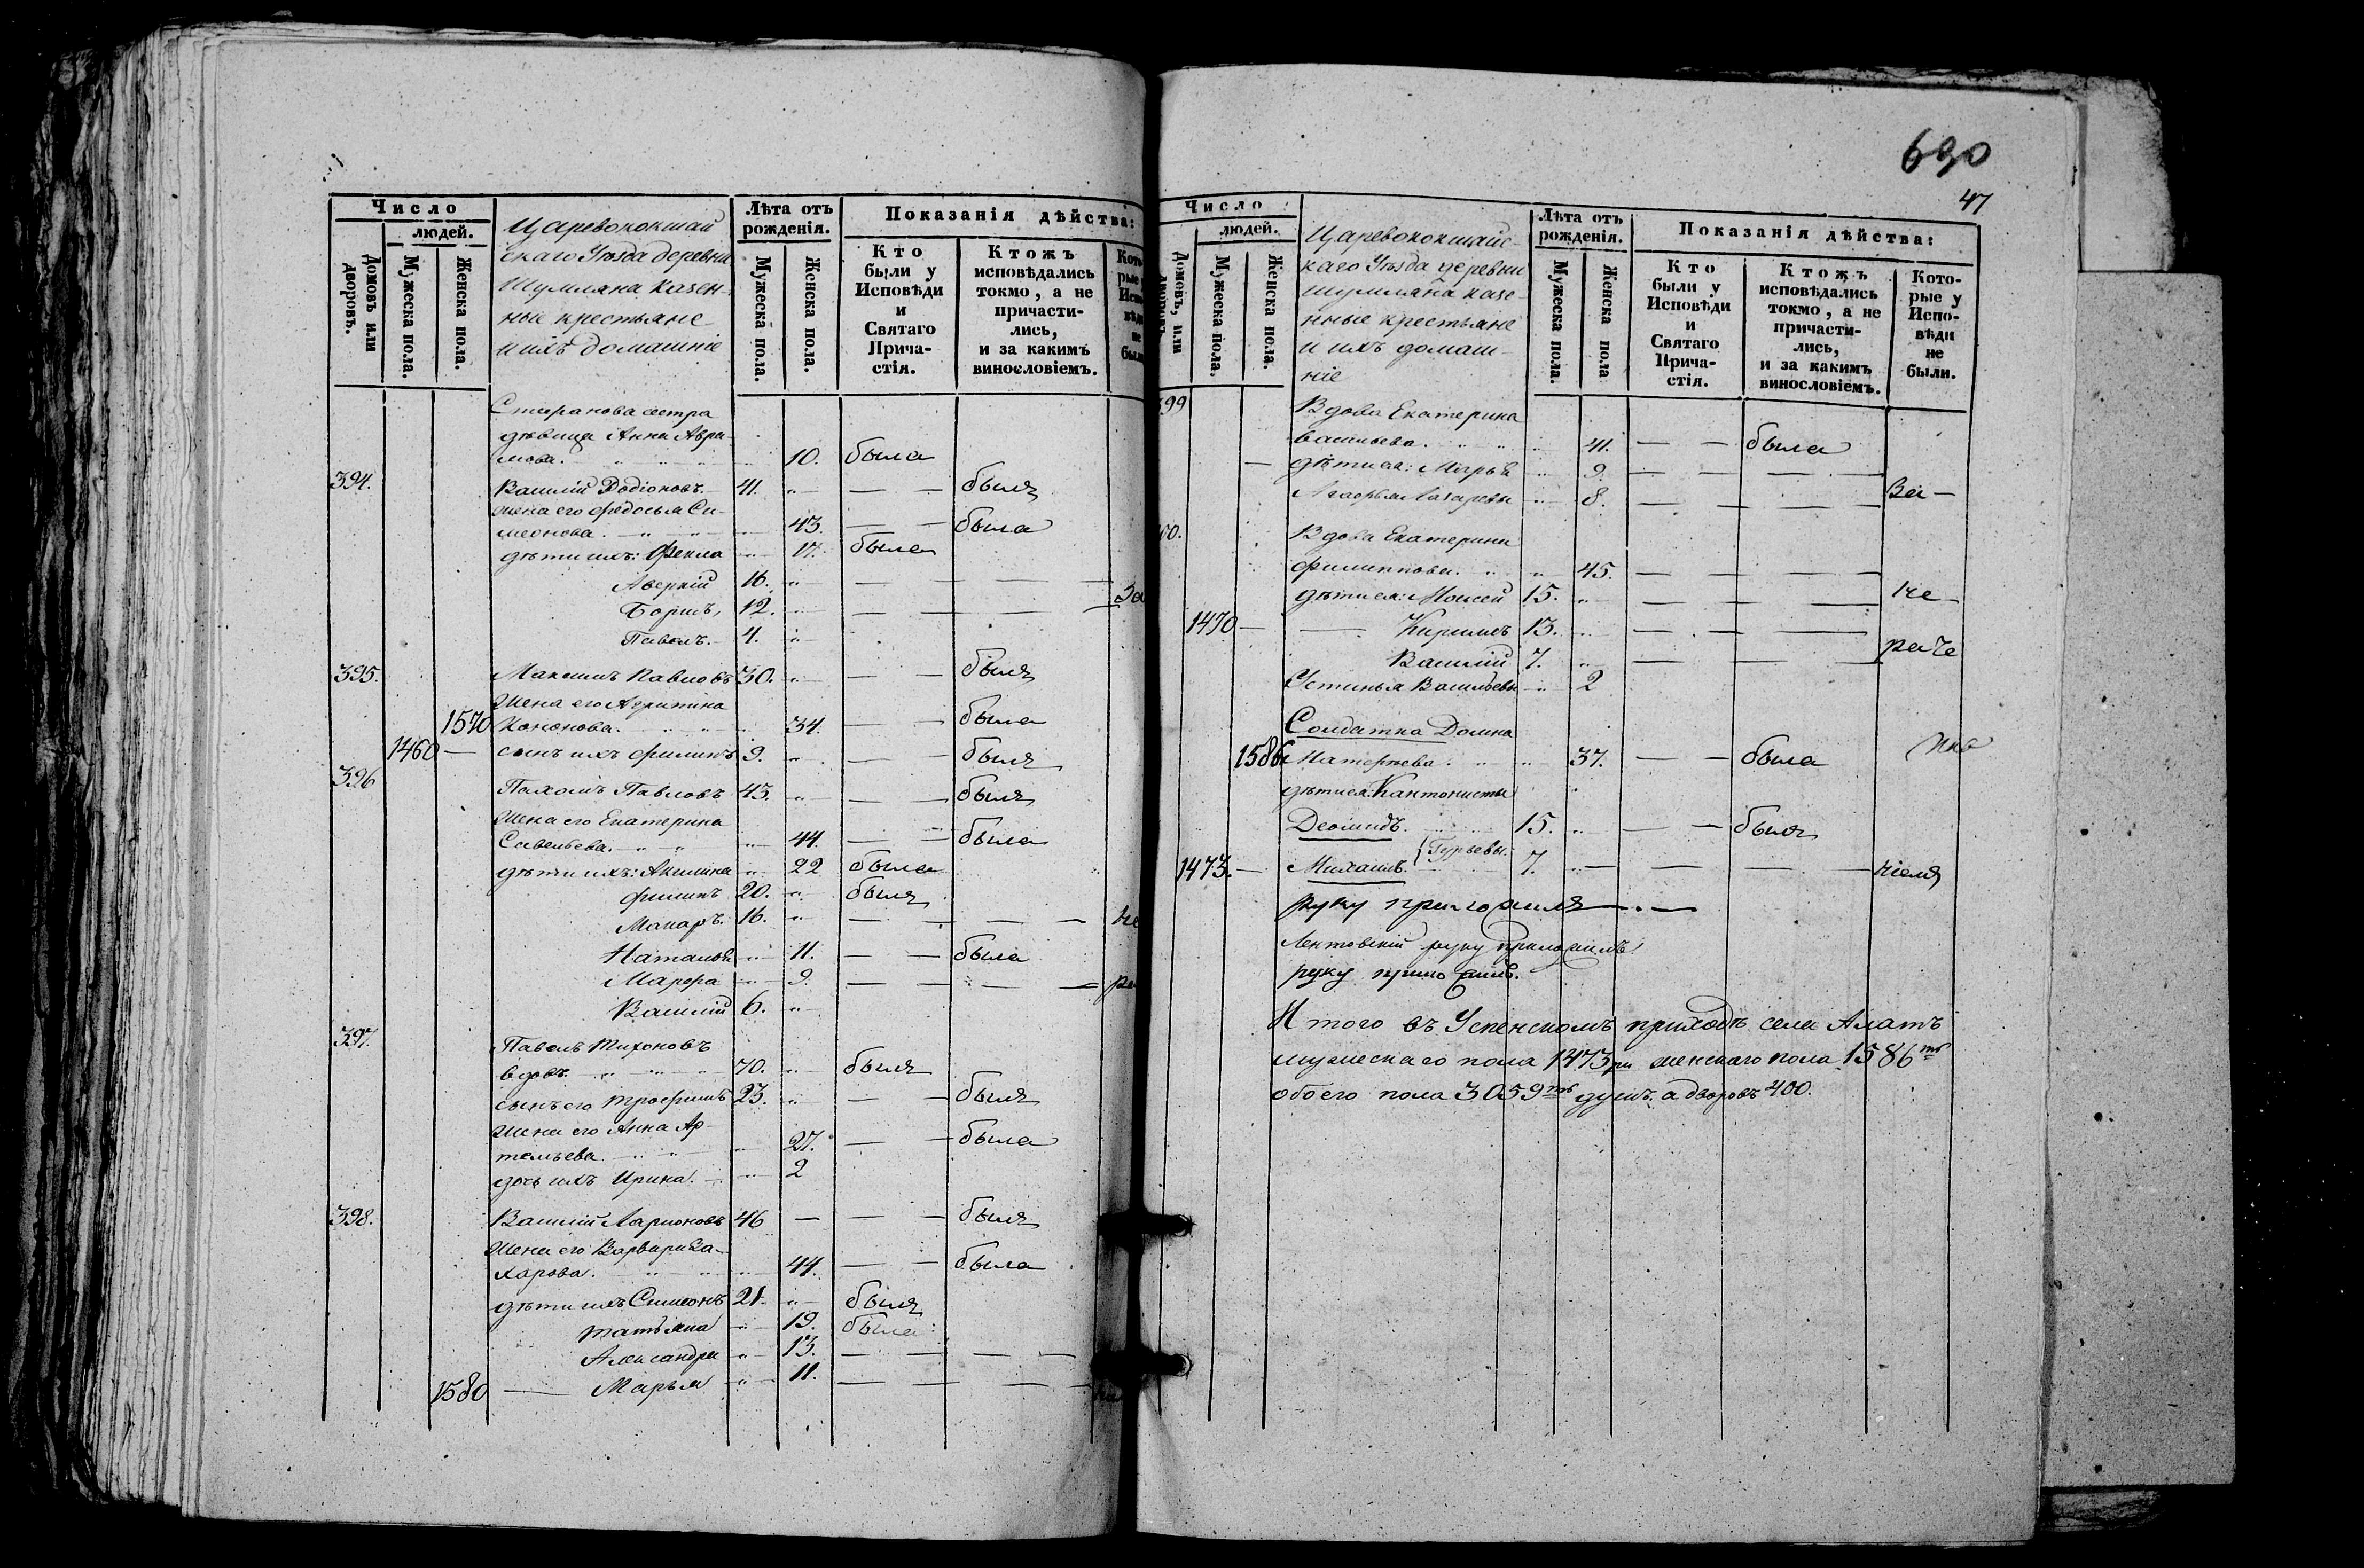 Число
людей.
Домовъ или дворовъ.
Мужеска пола.
Женска пола.
Царевококшай
скаго Уѣзда деревни
Шумляна казен-
ные крестьяне
и ихъ домашніе
Лѣта отъ
рожденія.
Мужеска пола.
Женска пола.
Показанія дѣйства:
Кто
были у
Исповѣди
и
Святаго
Прича-
стія.
Ктожъ
исповѣдались
токмо, а не
причасти-
лись,
и за какимъ
винословіемъ.
сестра
дѣвица Анна Авра
мова. 10. была
394. Василій Родіоновъ. 41. былъ
жена его Федосья Си-
меонова. 43. была
дѣти ихъ: Фекла 17. была
Аверкій 16.
Борисъ, 12. За
Павелъ. 4.
395. Максимъ Павловъ 30. былъ
Жена его Агрипина
1570 Кононова. 34. была
1460 сынъ ихъ Филипъ 9. былъ
396 Пахомъ Павловъ 43. былъ
Жена его Екатерина
Савельева. 44. была
дѣти ихъ: Акилина 22 была
Филипъ 20. былъ
Макаръ. 16. не
Наталья 11. была
Марфа 9. ра
Василій 6.
397. Павелъ Тихоновъ
вдовъ. 70. былъ
сынъ его Трофимъ 23. былъ
Жена его Анна Ар-
темьева. 27. была
дочь ихъ Ирина. 2
398. Василій Ларионовъ 46 былъ
Жена его Варвара За-
харова. 44. была
дѣти ихъ Симеонъ 21. былъ
Татьяна 19. была
Александра 13.
1580 Марья 11.
690
47
Число
людей.
Домовъ, или дворовъ
Мужеска пола.
Женска пола.
Царевококшайс-
каго Уѣзда деревни
Шумляна казе-
нные крестьяне
и ихъ домаш
ніе
Лѣта отъ
рожденія.
Мужеска пола.
Женска пола
Показанія дѣйства:
Кто
были у
Исповѣди
и
Святаго
Прича-
стія.
Ктожъ
исповѣдались
токмо, а не
причасти-
лись,
и за какимъ
винословіемъ.
Кото-
рые у
Испо-
вѣди
не
были.
399 Вдова Екатерина
Васильева. 41. была
дѣти ея: Марья 9.
8. За-
Вдова Екатерина
Филиппова. 45.
дѣти ея: Моисей 15. не-
1470 Кирилъ 13.
Василій 7. раче
Устинья Васильева 2
Солдатка Домна
1586 37. была
дѣти ея: Кантонисты
Деомидъ. 15. былъ
{Гурьевы.
1473. Михаилъ. 7. ніемъ
руку приложилъ
руку приложилъ
руку приложилъ.
Итого въ Успенскомъ приходѣ села Алатъ
мужескаго пола 1473 ри женскаго пола 1586ть
обоего пола 3059ть душъ. а дворовъ 400.